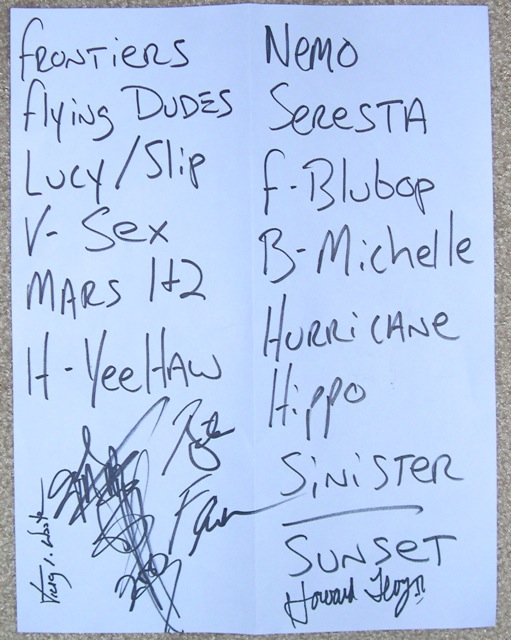 FRONTIERS
Flying DUDES
Lucy/Slip
V- Sex
MARS 1+2
H-YeeHaw
NEMO
SeRESTA
F-Blubop
B-Michelle
HURRiCANe
Hippo
SiNiSTER
SUNSET
Howard